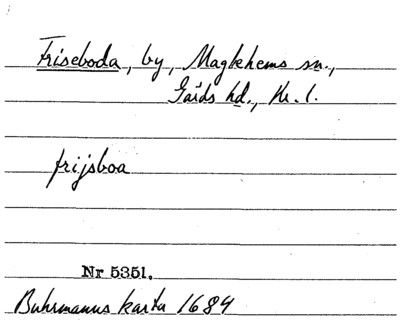 Friseboda, by, Maglehems sn.,
Gärds hd., Kr. l.
frijsboa
Nr 5351.
Buhrmanns karta 1684